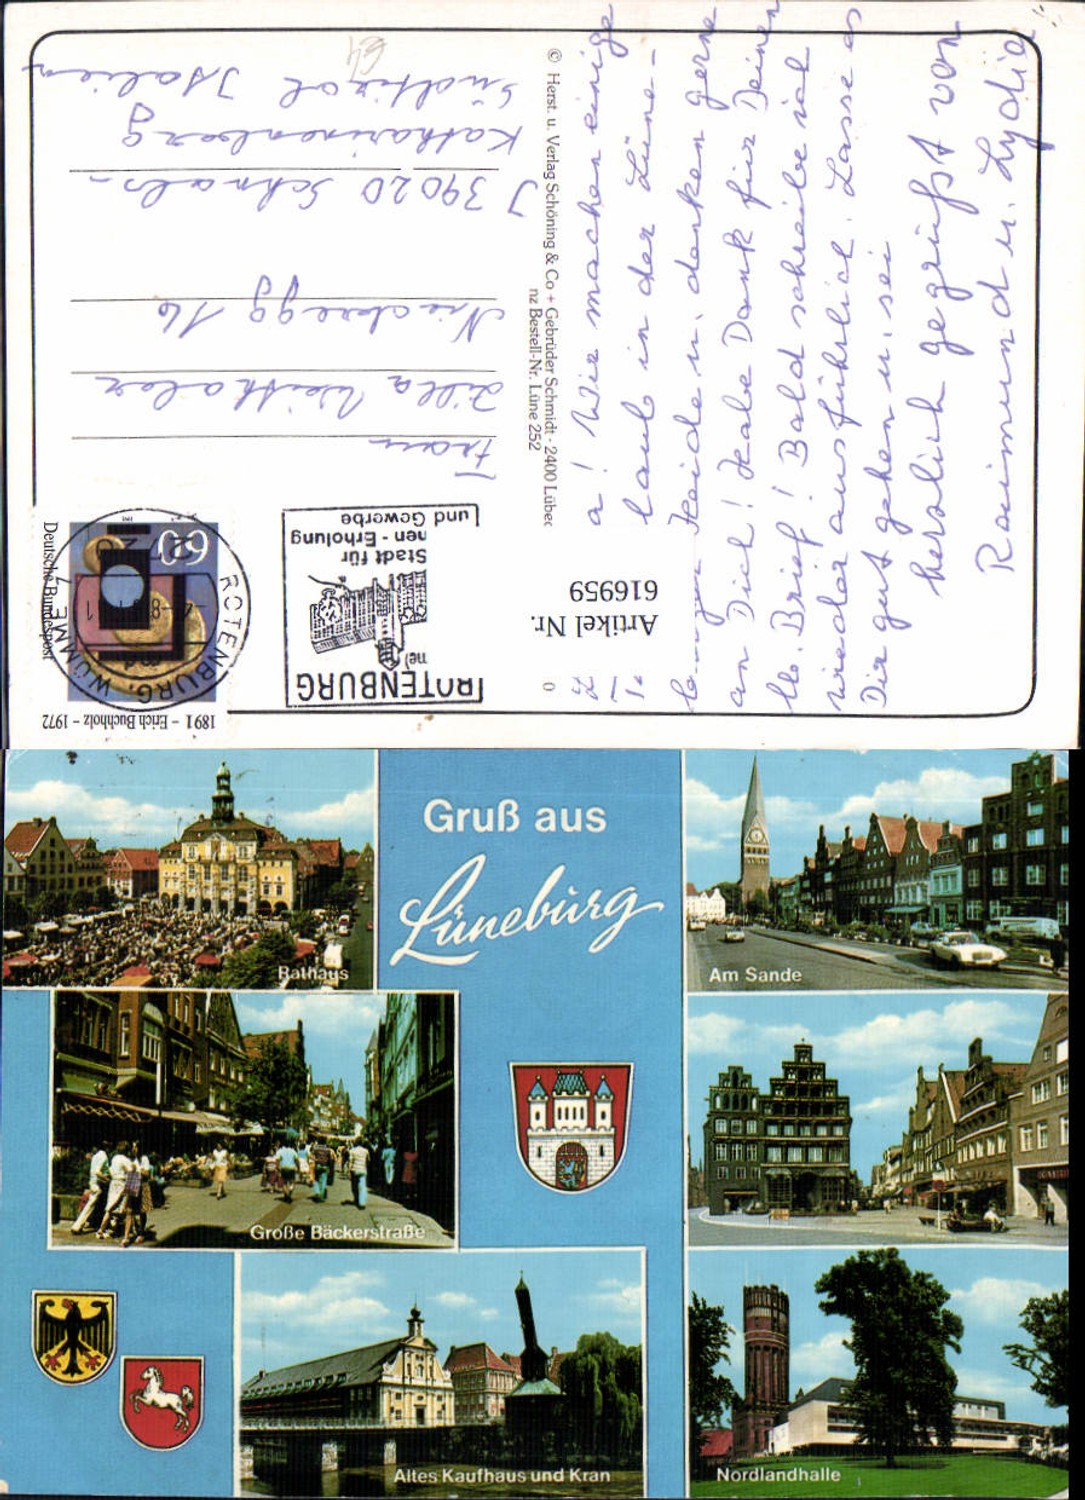 a! Wir machen einige
laub in der Lüne-
Heide u. denken gerne
an Dich! Habe Dank für Deinen
Brief! Bald schreibe ich
wieder ausführlich. Lasse es
Dir gut gehen u. sei
herzlich gegrüßt von
Raimund u. Lydia
© Herst. u. Verlag Schöning & Co + Gebrüder Schmidt · 2400 Lübec
nz Bestell-Nr. Lüne 252
Artikel Nr.
616959
1891 – Erich Buchholz – 1972
60
Deutsche Bundespost
ROTENBURG, WÜMME
ROTENBURG
me)
Stadt für
nen - Erholung
und Gewerbe
Frau
Zilla Weithaler
Niederegg 16
I 39020 Schnals-
Katharinenberg
Südtirol Italien
Gruß aus
Lüneburg
Rathaus
Am Sande
Große Bäckerstraße
Altes Kaufhaus und Kran
Nordlandhalle